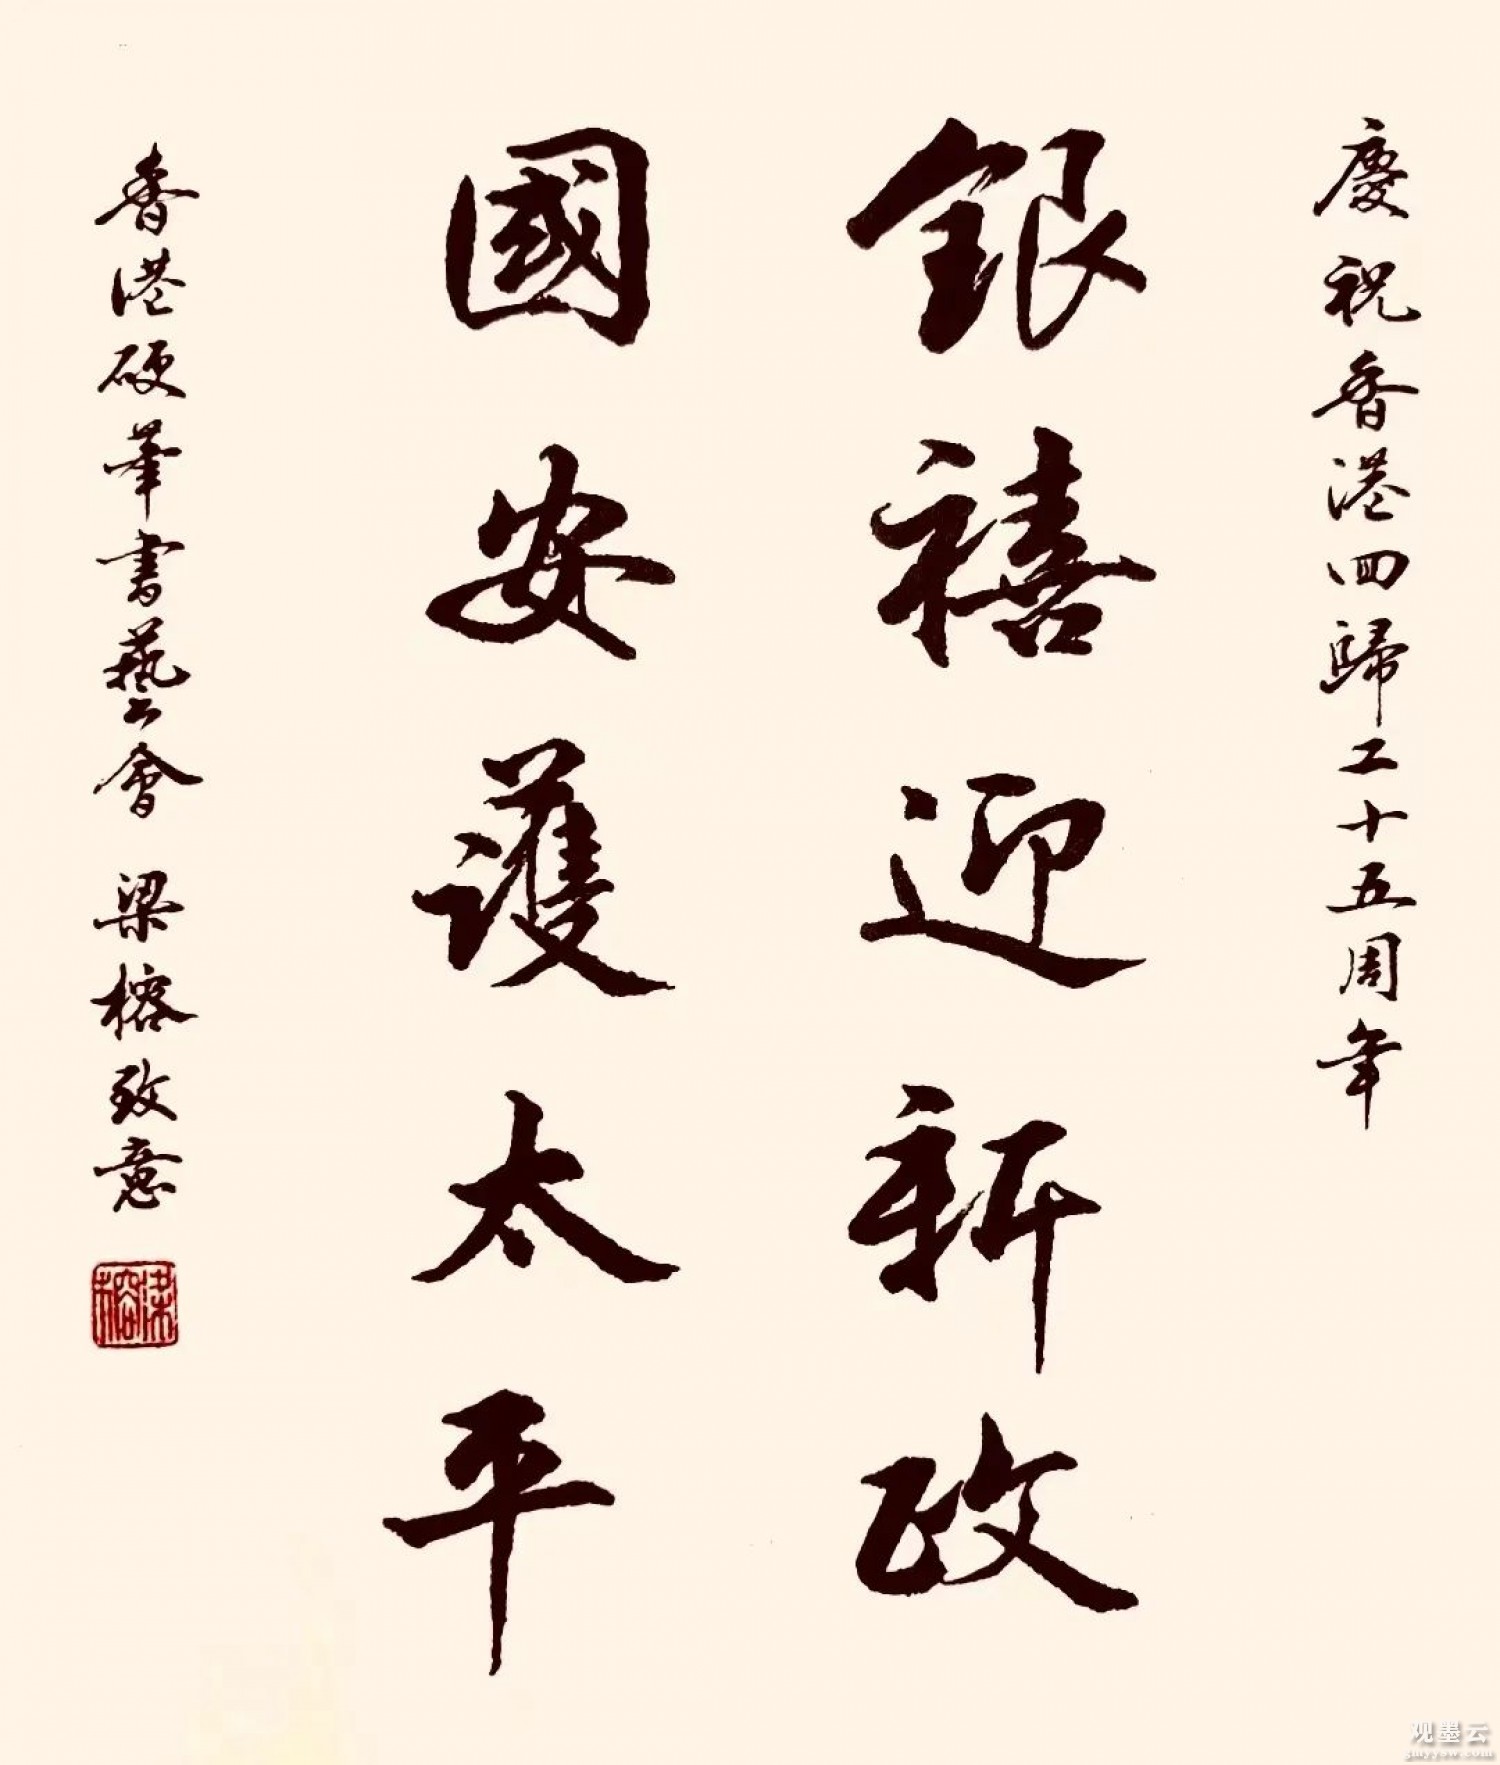 慶祝香港回歸二十五周年
銀禧迎新政
國安護太平
香港硬筆書藝會 梁榕致意
梁榕
观墨云
gmyyow.com